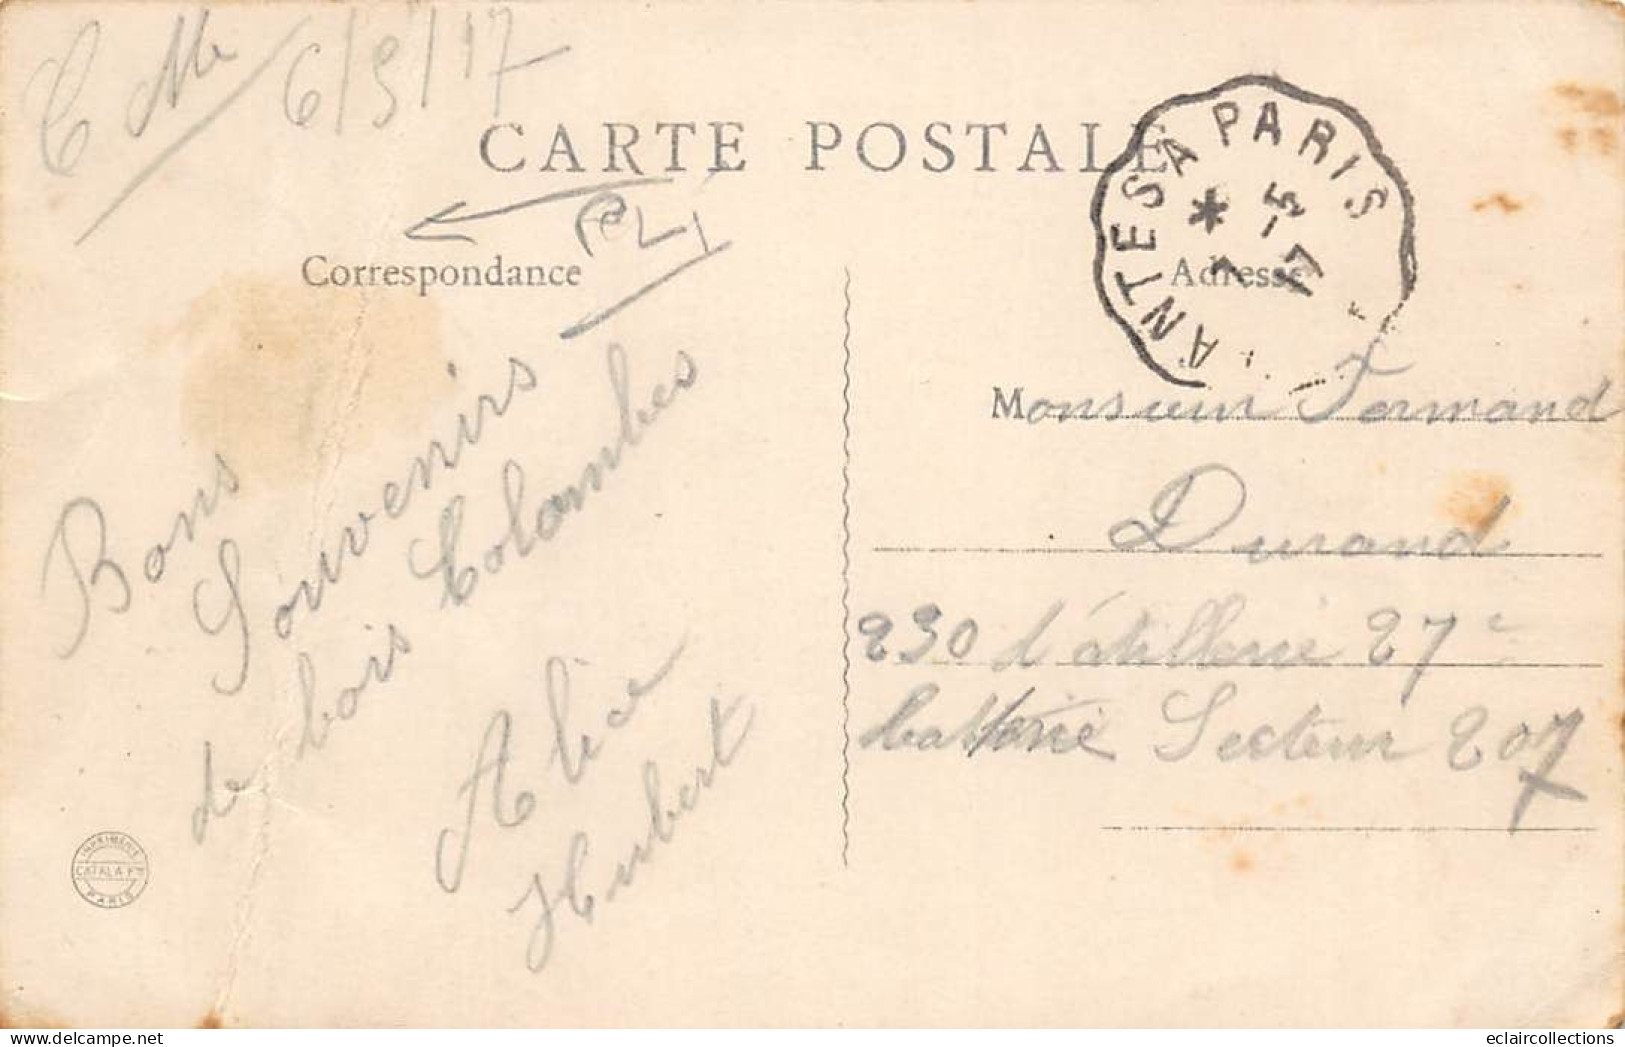 6/5/17
CARTE POSTALE
PLI
Correspondance
Adresse
MANTES A PARIS
* 7 -5 17
Bons
Souvenirs
de bois Colombes
Alice
Hubert
Monsieur Fernand
Durand
230 d'átillerie 27e
batterie Secteur 207
IMPRIMERIE
CATALA Frs
PARIS
eclaircollections